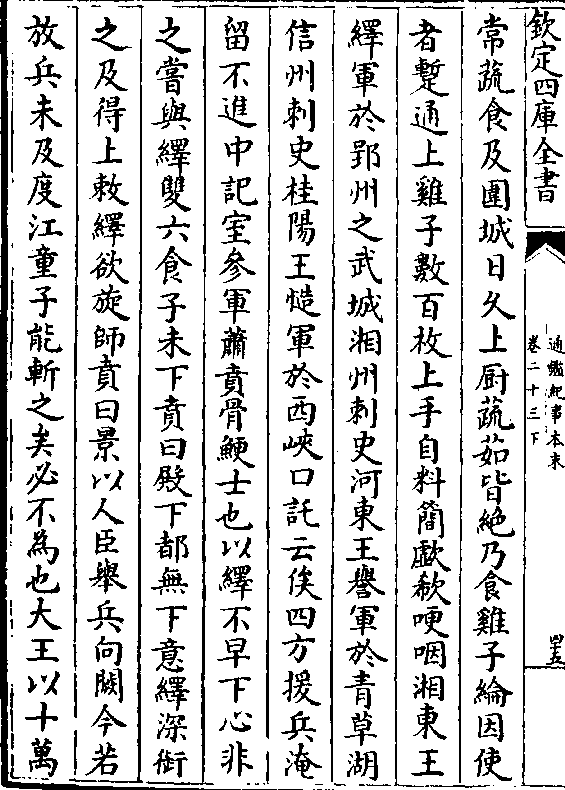 欽定四庫全書
通鑑紀事本末
卷二十三下
四五
常蔬食及圍城日久上厨蔬茹皆絶乃食雞子綸因使
者蹔通上雞子數百枚上手自料簡歔欷哽咽湘東王
繹軍於郢州之武城湘州刺史河東王譽軍於青草湖
信州刺史桂陽王慥軍於西峽口託云俟四方援兵淹
留不進中記室參軍蕭賁骨鯁士也以繹不早下心非
之嘗與繹雙六食子未下賁曰殿下都無下意繹深銜
之及得上敕繹欲旋師賁曰景以人臣舉兵向闕今若
放兵未及度江童子能斬之矣必不為也大王以十萬